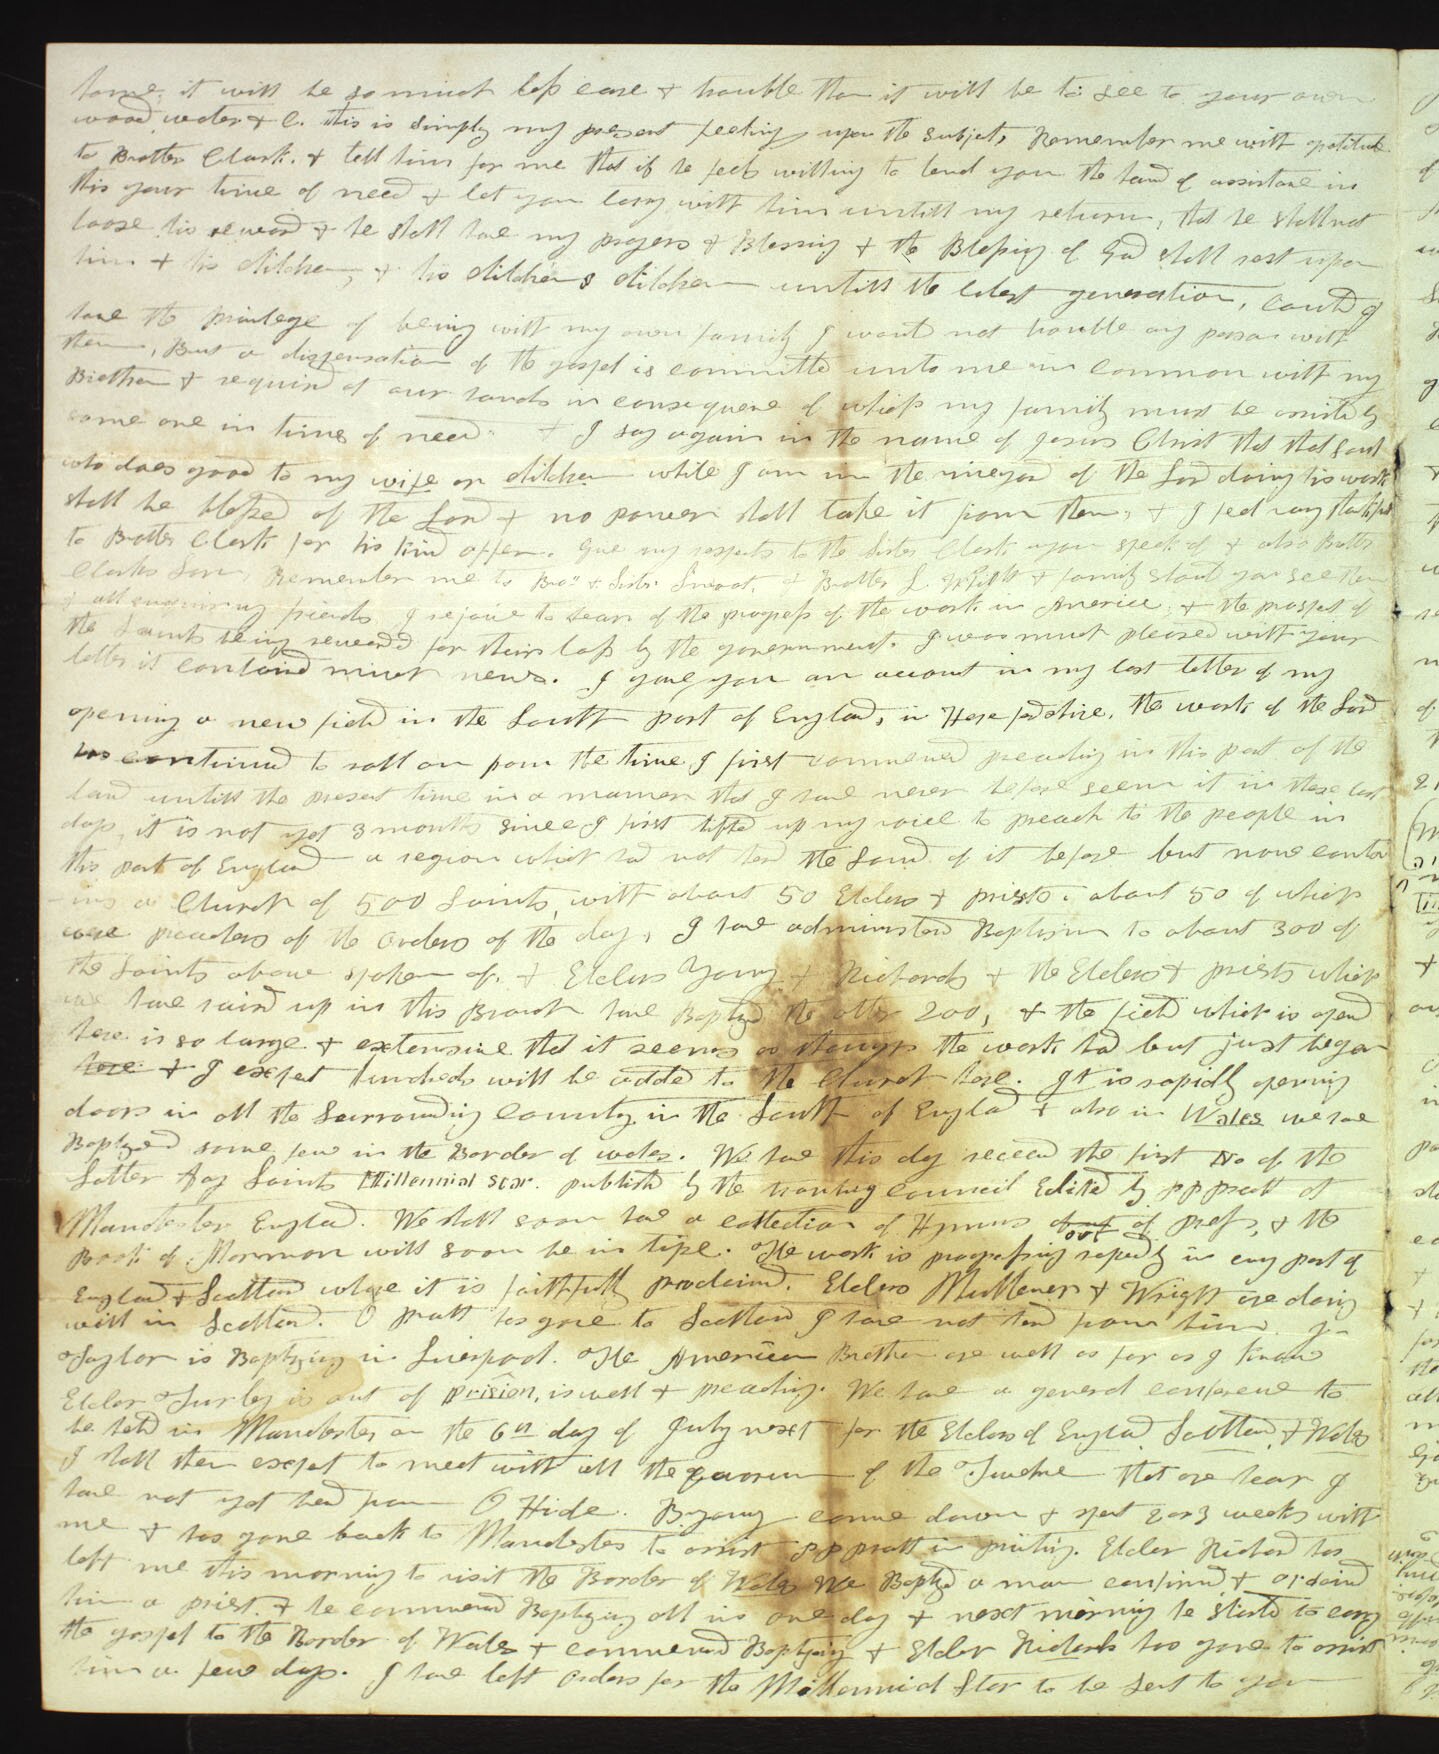 home, it will be so much less care & trouble than it will be to see to your own
wood, water & c. this is simply my present feelings upon the subject, Remember me with gratitude
to Brother Clark. & tell him for me that if he feels willing to lend you the hand of assistance in
this your time of need & let you tarry with him untill my return, that he shall not
loose his reward & he shall have my prayers & Blessing & the Blessing of God shall rest upon
him & his children, & his childrens children untill the latest generation, could I
have the privilege of being with my own family I would not trouble any person with
them, But a dispensation of the gospel is committed unto me in common with my
Brethren & required at our hands in consequence of which my family must be assisted by
some one in times of need. & I say again in the name of Jesus Christ that that soul
who does good to my wife or children while I am in the vineyard of the Lord doing his work
shall be blessed of the Lord & no power shall take it from them, & I feel very thankful
to Brother Clark for his kind offer. Give my respects to the Sister Clark you speak of & also Brother
Clarks Son, Remember me to Bro & Sister Smoot, & Brother L. & family should you see them
& all enquiring friends I rejoice to hear of the progress of the work in America, & the prospect of
the Saints being rewarded for their loss by the government. I was much pleased with your
letter it containd much news. I gave you an account in my last letter of my
opening a new field in the South part of England, in Herefordshire, the work of the Lord
has continued to roll on from the time I first commenced preaching in this part of the
land untill the present time in a manner that I have never before seen it in these last
days, it is not yet 3 months since I first lifted up my voice to preach to the people in
this part of England a region which had not herd the Sound of it before but now contain
-ing a Church of 500 Saints, with about 50 Elders & priests. about 50 of which
were preachers of the Orders of the day, I have administerd Baptism to about 300 of
the Saints above spoken of, & Elders Young & Richards & the Elders & priests which
we have raised up in this Branch have Baptized the other 200, & the field which is opend
here is so large & extensive that it seems as though the work had but just began
here & I expect hundreds will be added to the Church here. It is rapidly opening
doors in all the Surrounding County in the South of England & also in Wales we have
Baptized some few in the Border of wales. We have this day receved the first No of the
Latter Day Saints Millennial Star. published by the traveling council Edited by P P Pratt at
Manchester England. We shall soon have a collection of Hymns out of press, & the
Book of Mormon will soon be in tipe. The work is progressing rapedly in evry part of
England & Scotland where it is faithfully proclaimd. Elders Mulliner & Wright are doing
well in Scotland. O Pratt has gone to Scotland I have not herd from him. J-
Taylor is Baptizing in Liverpool. The American Brethren are well as far as I know
Elder Turley is out of prision, is well & preaching. We have a general conference to
be held in Manchester on the 6th day of July next for the Elders of England Scotland, & Wales
I shall then expect to meet with all the quorum of the Twelve that are hear I
have not yet herd from O Hide. B Young came down & spent 2 or 3 weeks with
me & has gone back to Manchester to assist P P Pratt in printing. Elder Richards has
left me this morning to visit the Border of Wales we Baptized a man confirmd & ordaind
him a priest & he commenced Baptizing all in one day & next morning he started to carry
the gospel to the Border of Wales & commenced Baptizing & Elder Richards has gone to assist
him a few days. I have left orders for the Millennial Star to be sent to you